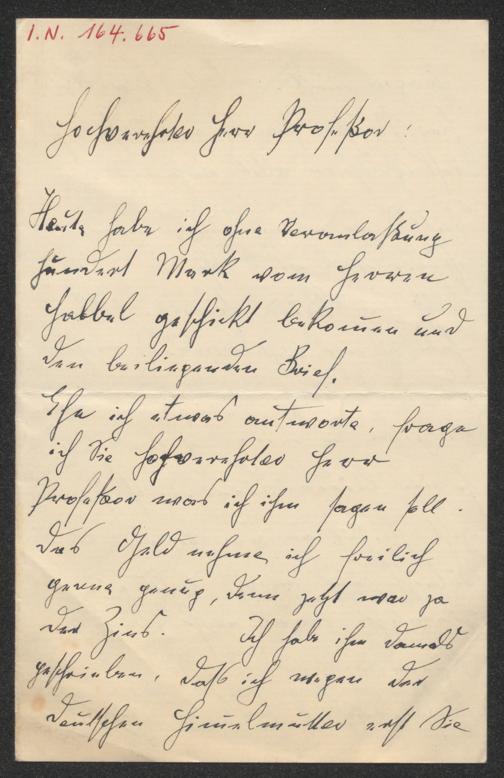 I. N. 164.665
Hochverehrter Herr Profeßor!
Heute habe ich ohne Veranlaßung
hundert Mark vom Herren
Habbel geschickt bekomen und
den beiliegenden Brief.
Ehe ich etwas antworte, frage
ich Sie hochverehrter Herr
Profeßor was ich ihm sagen soll.
Das Geld nehme ich freilich
gerne genug, denn jetzt war ja
der Zins. Ich habe ihm damals
geschrieben, daß ich wegen der
deutschen Himelmutter erst Sie